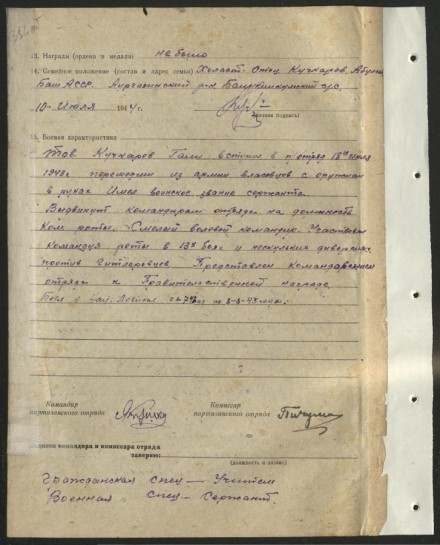 13. Награды (ордена и медали) не было
14. Семейное положение (состав и адрес семьи) Холост. Отец Кучкаров
Баш АССР. р-н с/с
10 июля 1944 г.
(личная подпись)
15. Боевая характеристика
Тов Кучкаров вступил в п/отряд 18го
перешедши из армии власовцев с оружием
в руках Имея воинское звание сержанта
Выдвинут командиром отряда на должность
Ком роты. Смелый волевой командир.
Командуя роты в 13ти боях и нескольких диверсиях
против Гитлеровцев Представлен командованием
отряда к Правительственной награде.
Командир
партизанского отряда
Комиссар
партизанского отряда
командира и комиссара отряда
заверяю:
(должность и звание)
Гражданская спец — Учитель
Военная спец — Сержант.